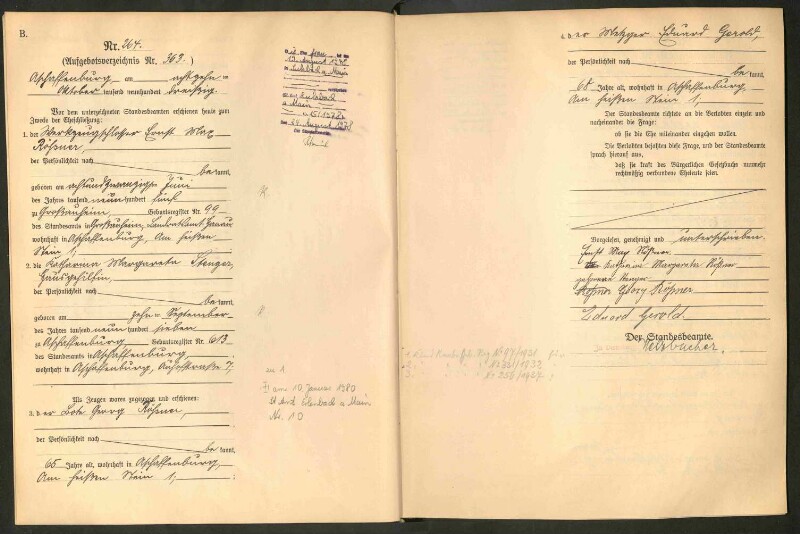 B.
Nr. 264.
(Aufgebotsverzeichnis Nr. 263.)
Aschaffenburg am achtzehn=
Oktober tausend neunhundert dreißig.
Vor dem unterzeichneten Standesbeamten erschienen heute zum
Zwecke der Eheschließung:
1. der Werkzeugschlosser Ernst Max
Rößner,
der Persönlichkeit nach
be kannt,
geboren am achtundzwanzigsten Juni
des Jahres tausend neunhundert fünf
zu Großauheim, Geburtsregister Nr. 99
des Standesamts in Großauheim, Landratsamt Hanau,
wohnhaft in Aschaffenburg, Am heißen
Stein 1;
2. die Katharina Margareta Stenger,
Hausgehilfin,
der Persönlichkeit nach
be kannt,
geboren am zehn= September
des Jahres tausend neunhundert sieben
zu Aschaffenburg Geburtsregister Nr. 613
des Standesamts in Aschaffenburg
wohnhaft in Aschaffenburg, 7.
Als Zeugen waren zugezogen und erschienen:
3. der Bote Georg Rößner,
der Persönlichkeit nach
be kannt,
65 Jahre alt, wohnhaft in Aschaffenburg,
Am heißen Stein 1;
Frau
13. August 1978
Sulzbach a. Main
Sulzbach
a. Main
6/1978
29. August 1978
zu 1
am 10. Januar 1980
St. Amt a. Main
Nr. 10
4. der Metzger Eduard Gerold,
der Persönlichkeit nach
be kannt,
68 Jahre alt, wohnhaft in Aschaffenburg,
Am heißen Stein 1;
Der Standesbeamte richtete an die Verlobten einzeln und
nacheinander die Frage:
ob sie die Ehe miteinander eingehen wollen.
Die Verlobten bejahten diese Frage, und der Standesbeamte
sprach hierauf aus,
daß sie kraft des Bürgerlichen Gesetzbuchs nunmehr
rechtmäßig verbundene Eheleute seien.
Vorgelesen, genehmigt und unterschrieben.
Ernst Max Rößner
Katharina Margareta Rößner
geborene Stenger
Georg Rößner
Eduard Gerold
Der Standesbeamte.